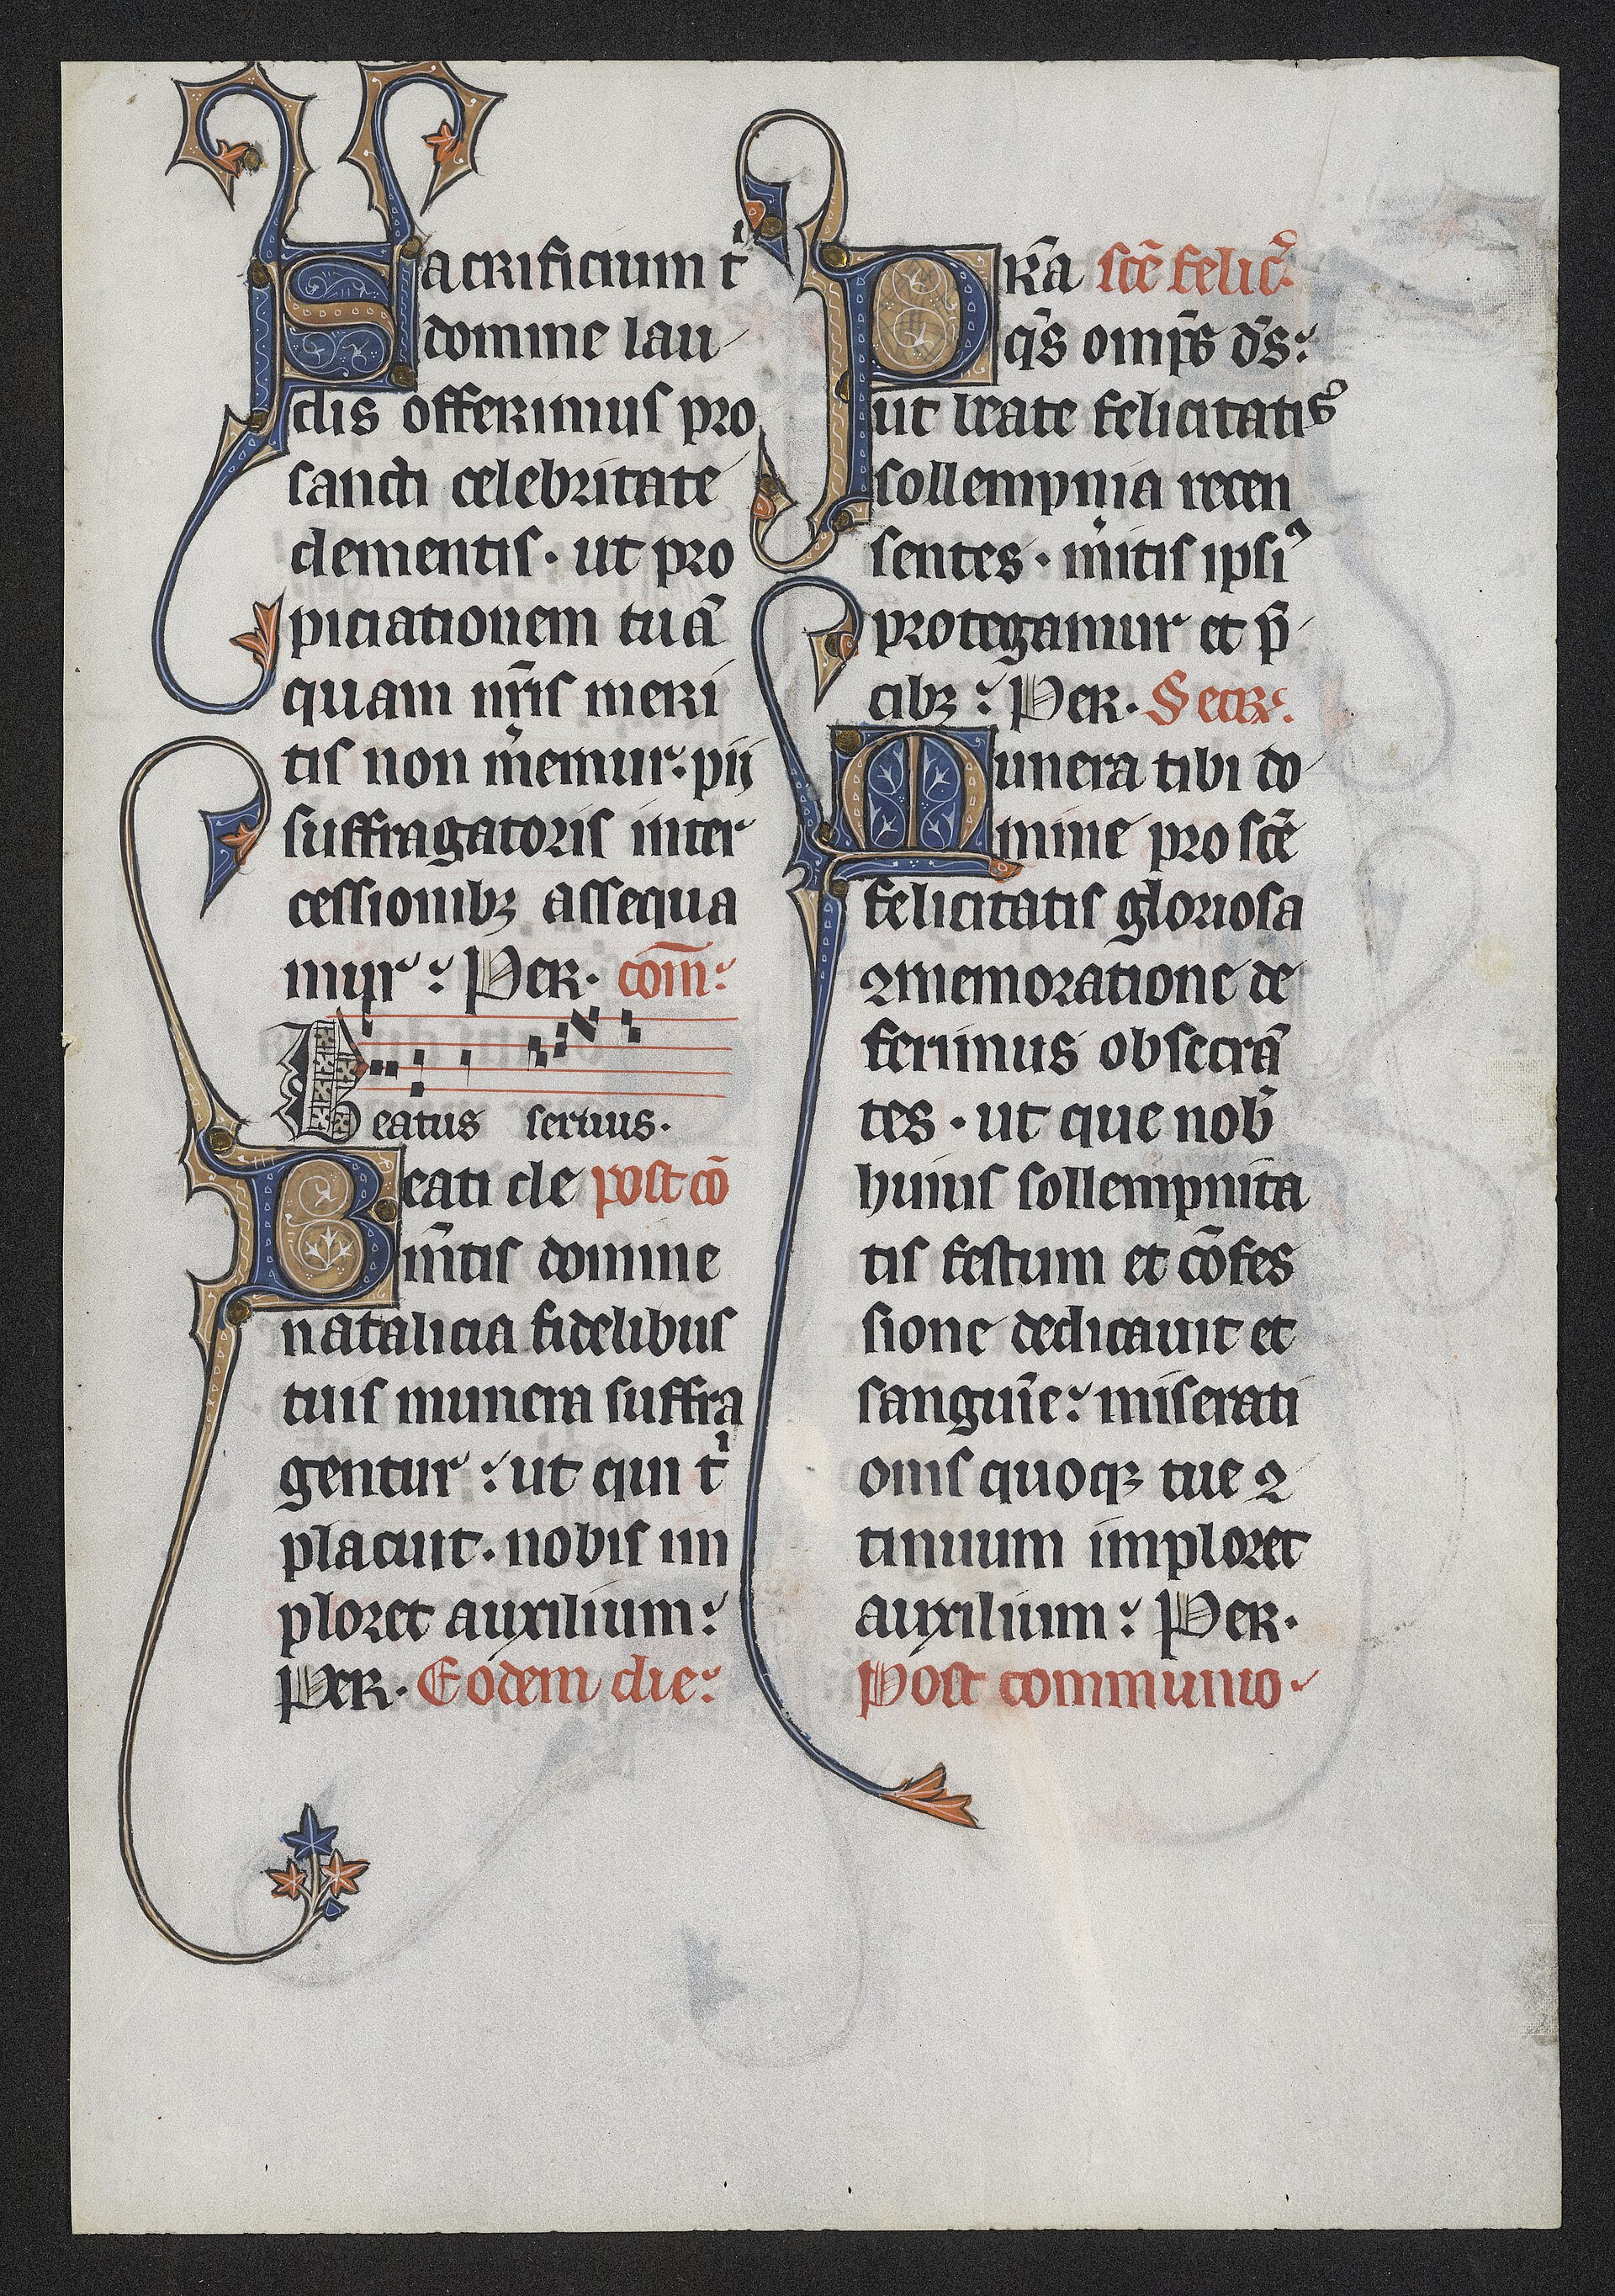 Sacrificium tⁱ
domine lau
dis offerimus pro
sancti celebritate
clementis · ut pro
piciationem tuā
quam nr̄is meri
tis non mͥemur : pii
suffragatoris inter
cessionibꝫ assequa
mur : Per · com̄ :
Beatus seruus ·
Beati cle post cō
mn̄tis domine
natalicia fidelibus
tuis munera suffra
gentur : ut qui tⁱ
placuit · nobis im
ploret auxilium :
Per · Eodem die :
Pr̄a sc̄e felic̉ :
qs̄ omp̄s ds̄ :
ut beate felicitatis
sollempnia recen
sentes · mͥitis ipsiꝰ
protegamur et p̄
cibꝫ : Per · Secr̄ :
Munera tibi do
mine pro sc̄e
felicitatis gloriosa
ꝯmemoratione de
ferimus obsecrā
tes · ut que nob̄
huius sollempnita
tis festum et cōfes
sione dedicauit et
sanguīe : miserati
onis quoqꝫ tue ꝯ
tinuum imploret
auxilium : Per ·
Post communio ·